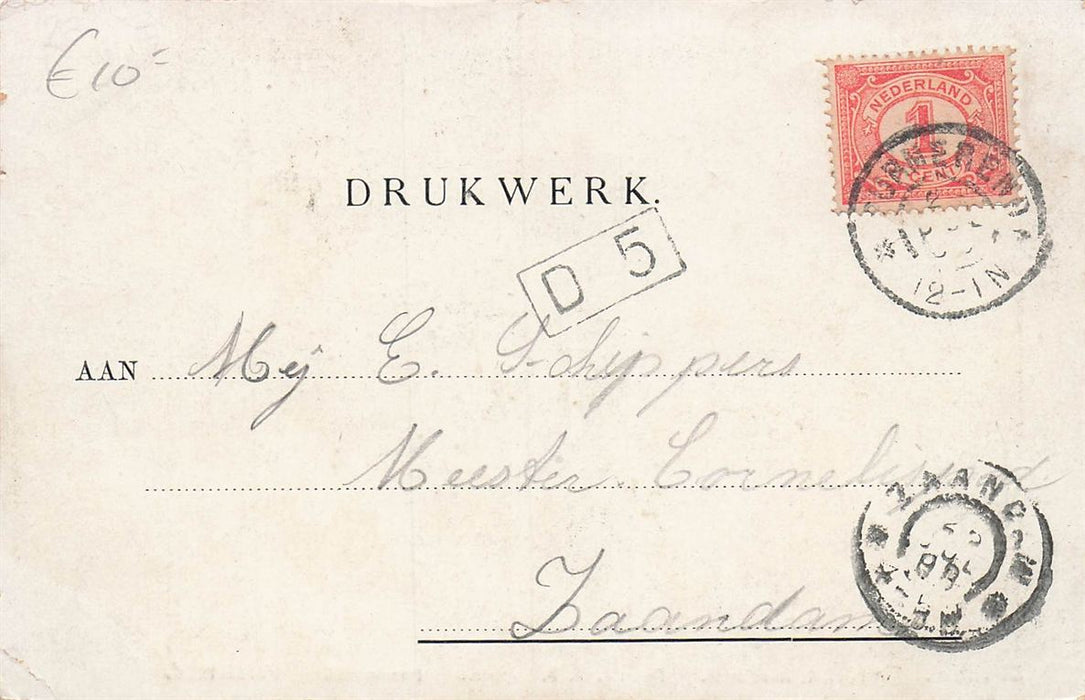 €10-
NEDERLAND
1
CENT
PURMEREND
12-1N
DRUKWERK.
D 5
AAN Mej E. Schippers
Meester Cornelisstr
Zaandam
ZAANDAM